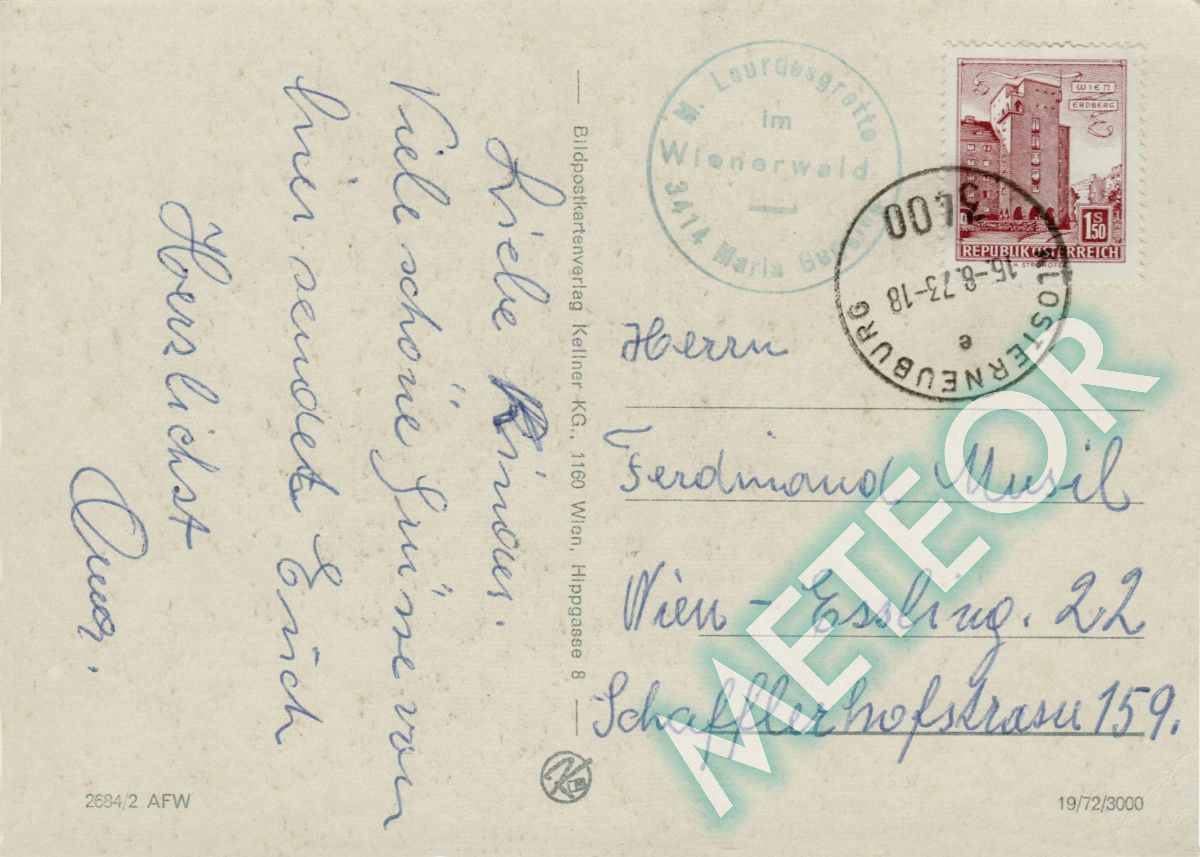 Liebe Kinder.
Viele schöne Grüsse von
hier sendet Erich
Herzlichst
Bildpostkartenverlag Kellner KG., 1160 Wien, Hippgasse 8
M. Lourdesgrotte
im
Wienerwald
3414 Maria
WIEN
ERDBERG
S
150
REPUBLIK ÖSTERREICH
3400
15.-8.73-18
e
KLOSTERNEUBURG
Herrn
Ferdinand Musil
Wien - Essling. 22
Schafflerhofstrasse 159.
2684/2 AFW
19/72/3000
METEOR